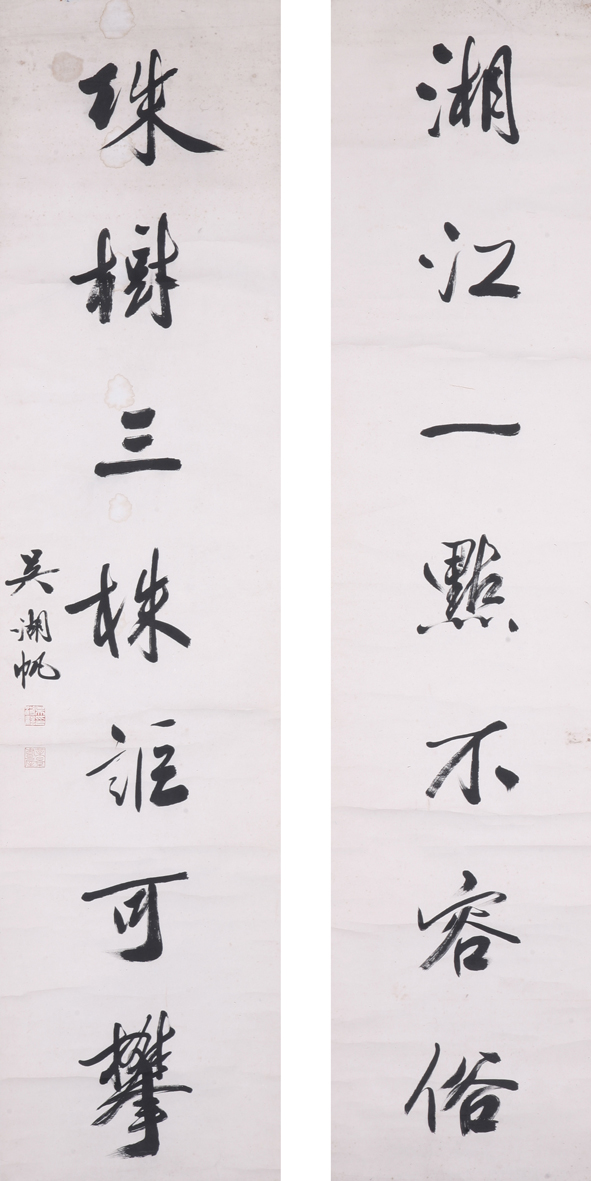 湘江一點不容俗
珠樹三株詎可攀
吳湖帆